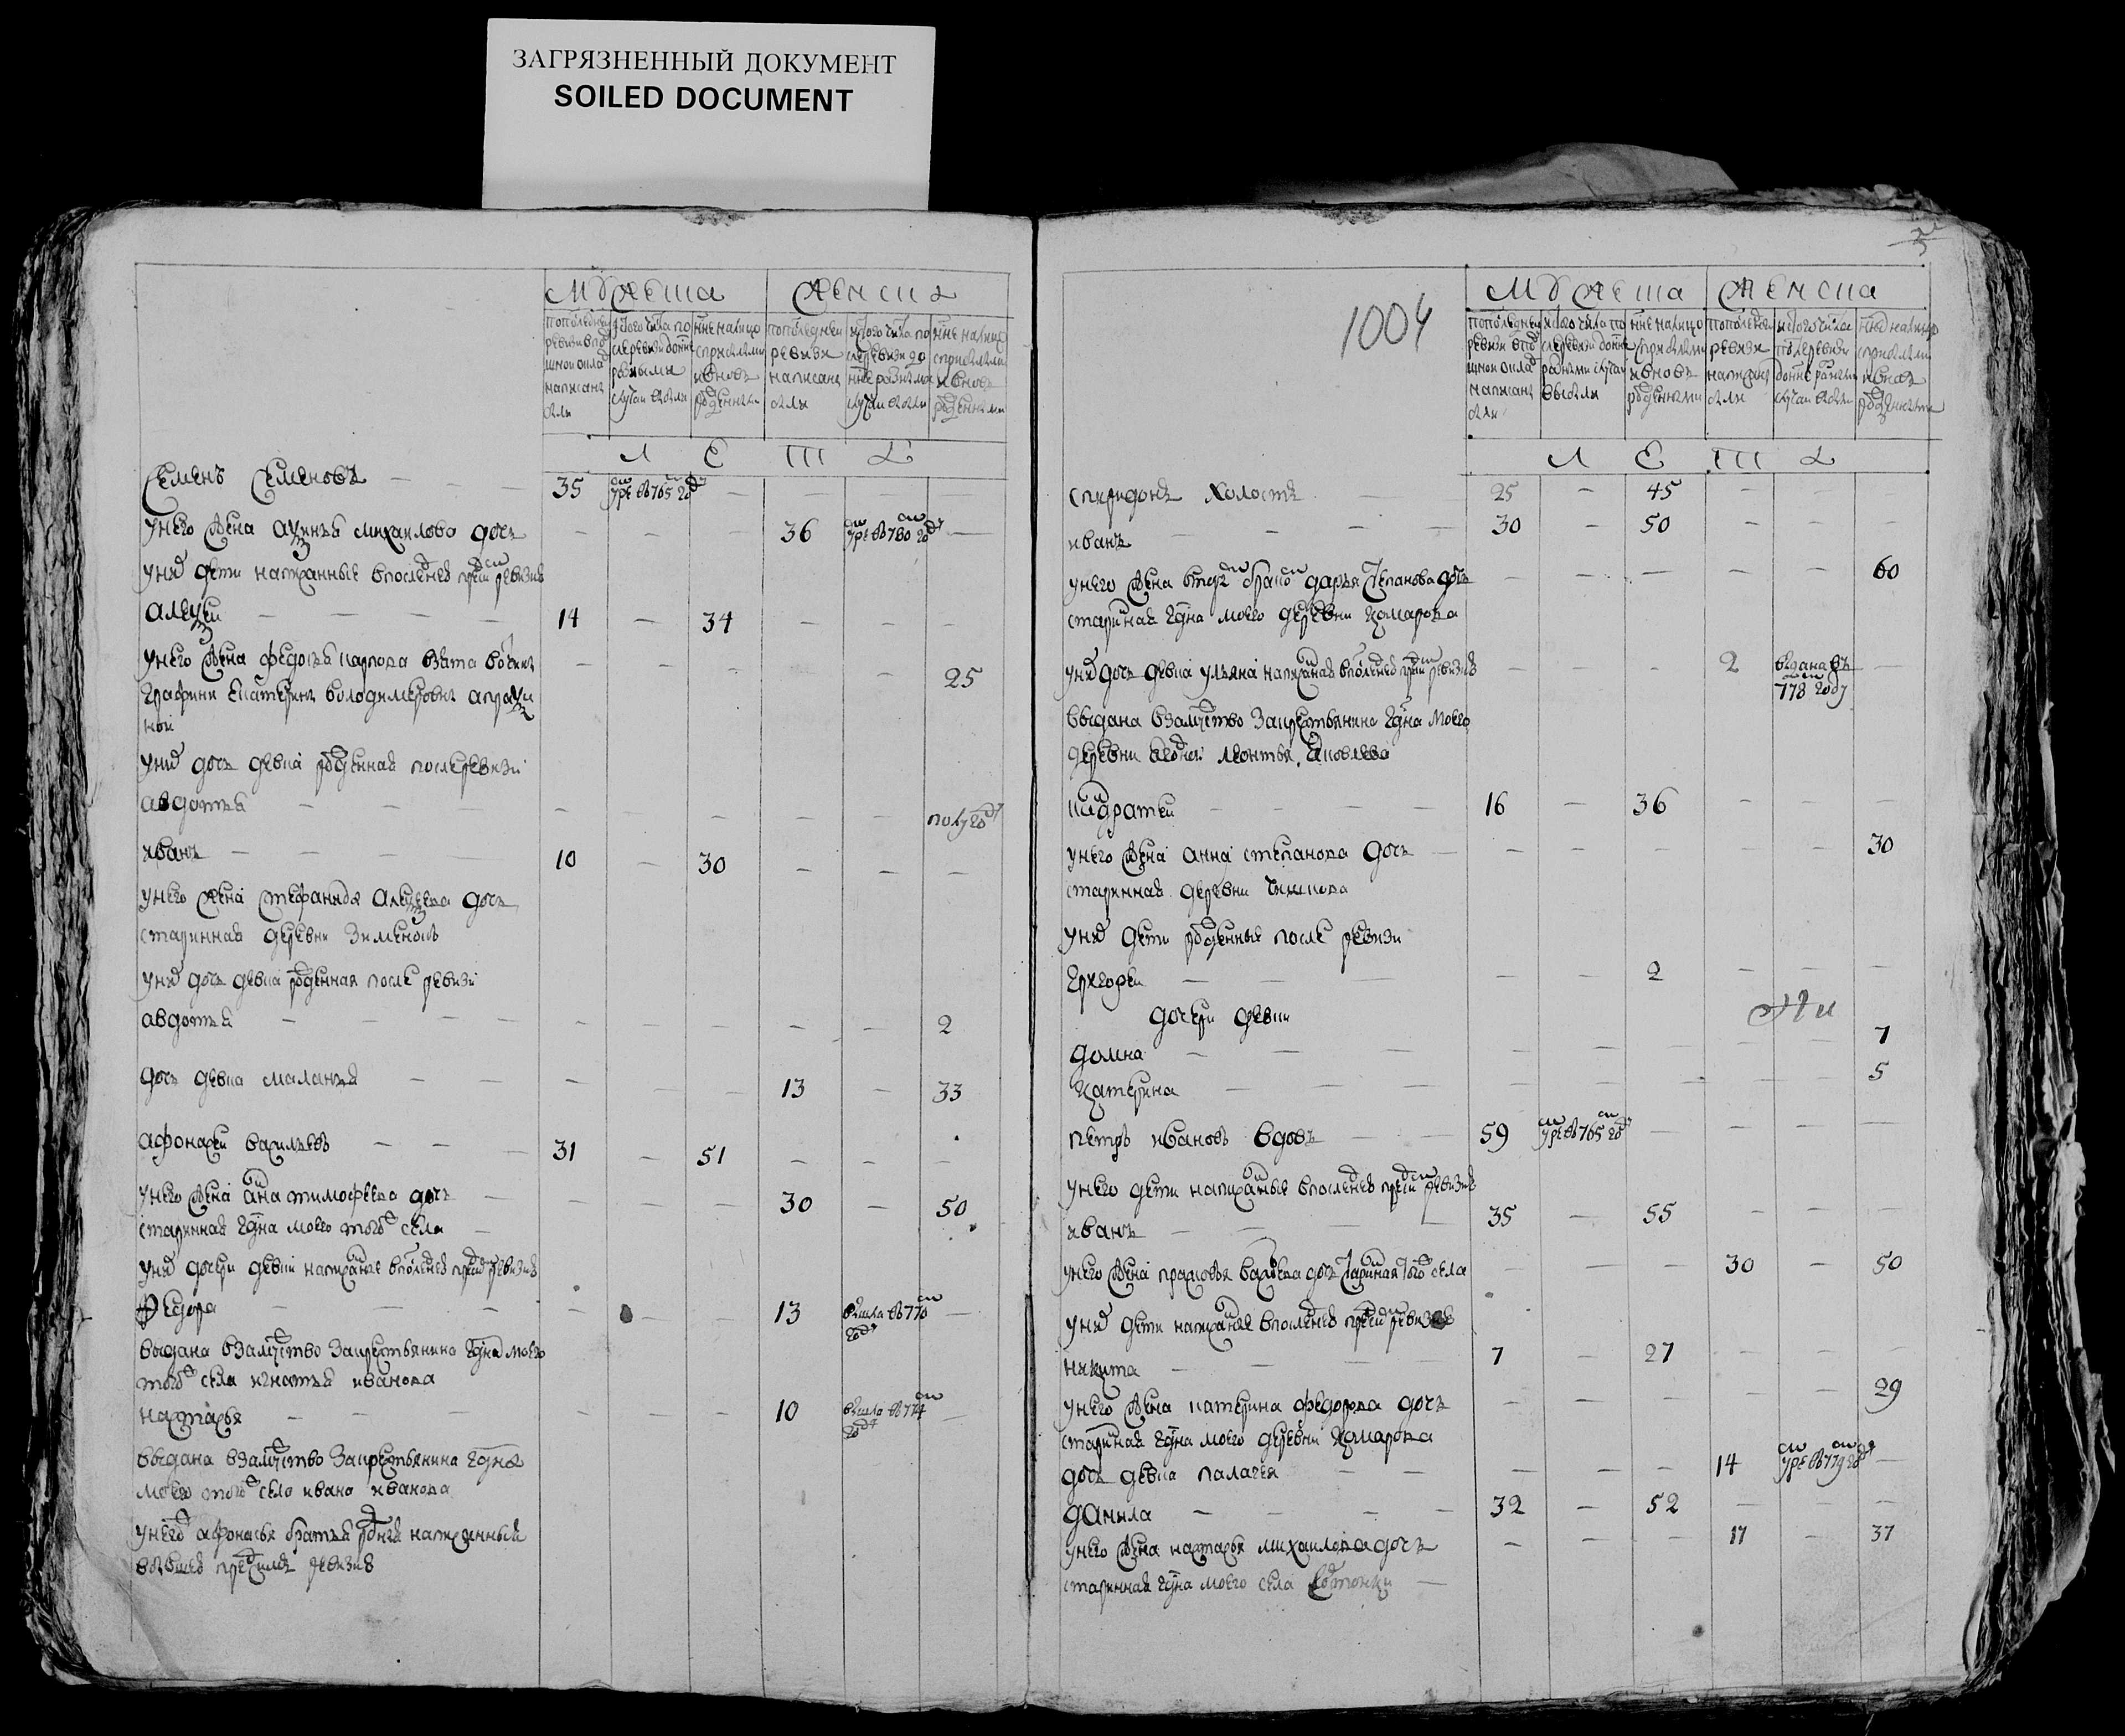 ЗАГРЯЗНЕННЫЙ ДОКУМЕНТ
SOILED DOCUMENT
Мужеска Женска
по последней ревизии в подушной оклад написаны были
из того числа после ревизии до ныне разными случаи выбыли
ныне налицо с прибылыми и вновь рожденными
по последней ревизии написаны были
из того числа после ревизии до ныне разными случаи выбыли
ныне налицо с прибылыми и вновь рожденными
Л Е Т А
Семенъ Семеновъ 35 умре въ 765 году
у него жена Аксинья Михаилова дочь 36 умре въ 780 году
у них дети написанные в последней пред сим ревизии
Алексей 14 34
у него жена Федосья Карпова взята вотчины 25
графини Катерины Володимеровны Апракси
ной
у них дочь девка рожденная после ревизии
Авдотья полугоду
Иванъ 10 30
у него жена Стефанида Алексеева дочь
старинная деревни Зименокъ
у них дочь девка рожденная после ревизии
Авдотья 2
дочь девка Маланья 13 33
Афонасей Васильевъ 31 51
у него жена Анна Тимофеева дочь 30 50
старинная г–дна моего того ж села
у них дочери девки написанные в последней пред сим ревизии
Федора 13 вышла въ 770 году
выдана в замужство за крестьянина г–дна моего
того ж села Игнатья Иванова
Настасья 10 вышла въ 774 году
выдана в замужство за крестьянина г–дна
моего того ж села Ивана Иванова
у него Афонасья братья родныя написанныи
ревизии
1004
Мужеска Женска
по последней ревизии в подушной оклад написаны были
из того числа после ревизии до ныне разными случаи выбыли
ныне налицо с прибылыми и вновь рожденными
по последней ревизии написаны были
из того числа после ревизии до ныне разными случаи выбыли
ныне налицо с прибылыми и вновь рожденными
Л Е Т А
Спиридонъ холостъ 25 45
Иванъ 30 50
у него жена вторым браком Дарья Степанова дочь 60
старинная г–дна моего деревни Комарова
у них дочь девка Ульяна написанная в последней пред сим ревизии 2 выдана въ 778 году
выдана в замужство за крестьянина г–дна моего
деревни Леонтья Яковлева
Кондратей 16 36
у него жена Анна Степанова дочь 30
старинная деревни
у них дети рожденные после ревизии
Ерхофей 2
дочери девки
Домна 7
Катерина 5
Петръ Ивановъ вдовъ 59 умре въ 765 году
у него дети написанные в последней пред сим ревизии
Иванъ 35 55
у него жена Прасковья Васильева дочь старинная того ж села 30 50
у них дети написанные в последней пред сим ревизии
Никита 7 27
у него жена Катерина Федорова дочь 29
старинная г–дна моего деревни Комарова
дочь девка Палагея 14 умре въ 779 году
Данила 32 52
у него жена Настасья Михаилова дочь 17 37
старинная г–дна моего села